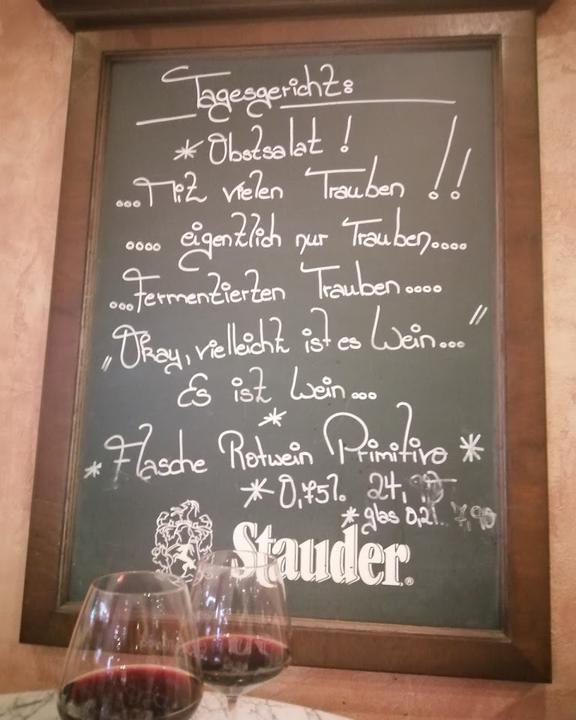 Tagesgericht:
* Obstsalat !
...Mit vielen Trauben !!
.... eigentlich nur Trauben....
...Fermentierten Trauben....
„Okay, vielleicht ist es Wein..."
Es ist Wein...
*
* Flasche Rotwein Primitivo *
* 0,75l. 24,
* glas 0,2l. 7,90
Stauder®